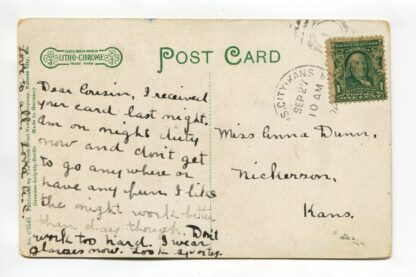 LITHO-CHROME
TRADE MARK
POST CARD
S. CITY, KANS.
SEP 27
10 AM
1
Dear Cousin, I received
your card last night.
Am on night duty
now and don't get
to go any where or
have any fun. I like
the night work better
than day though. Don't
work too hard. I wear
glasses now. Look sporty.
Miss Anna Dunn,
Nickerson,
Kans.
Made in Germany